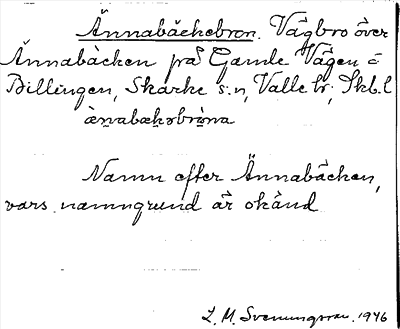 Ännabäckebron. Vägbro över
Ännabäcken på Gamle Vägen å
Billingen, Skarke s:n, Valle hr, Skb. l
änabækəbrona
Namn efter Ännabäcken,
vars namngrund är okänd
L. M. Svenungsson. 1946